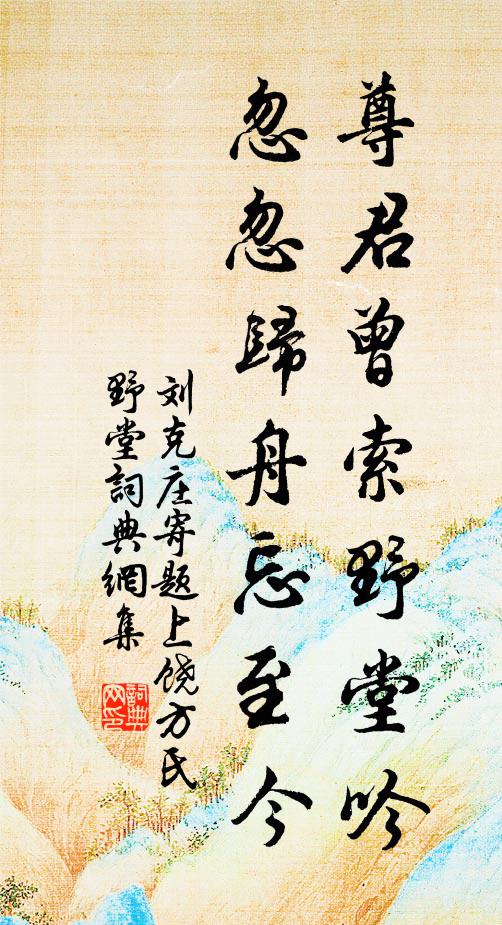 尊君曾索野堂吟
忽忽歸舟忘至今
刘克庄寄题上饶方氏
野堂詞典網集
詞典
网印